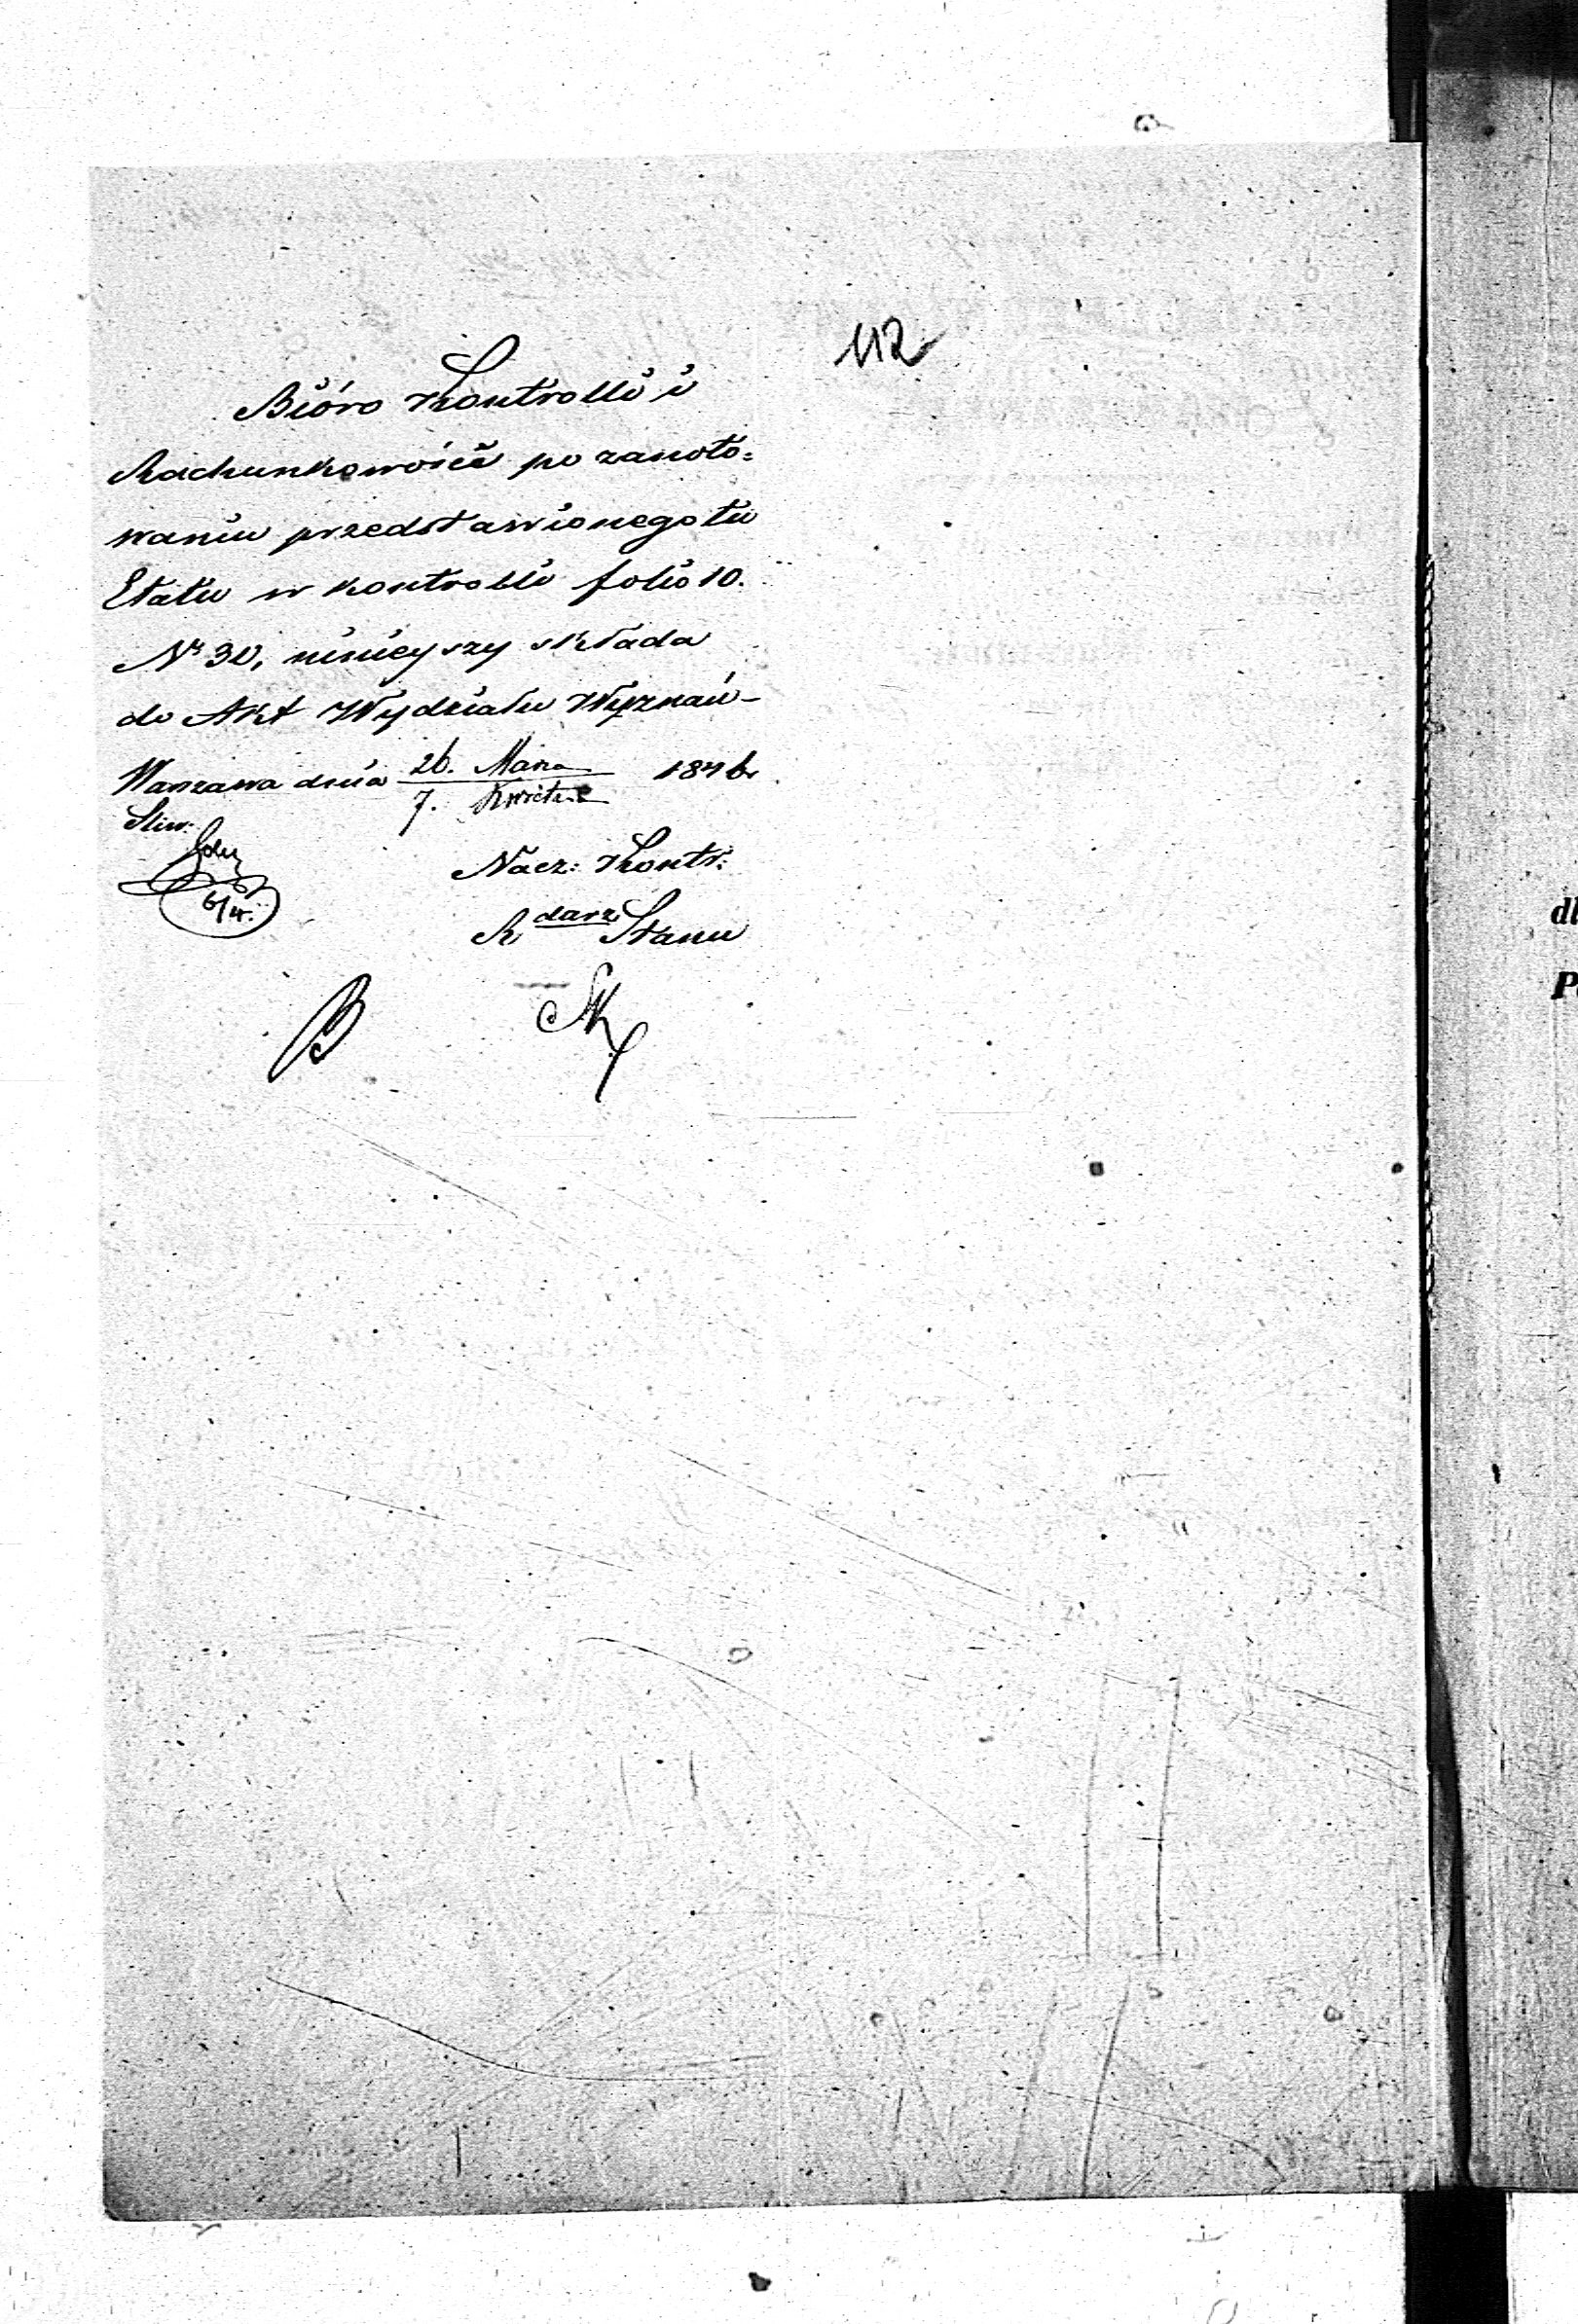 112
Bióro Kontrolli i
Rachunkowości po zanoto=
waniu przedstawionego tu
Etatu w kontrolli folio 10.
Nr 30, ninieyszy składa
do Akt Wydziału Wyznań -
Warszawa dnia 26. Marca 1846
7. Kwietnia
Nacz: Kontr:
R darz Stanu
6/4.
B
dl
P